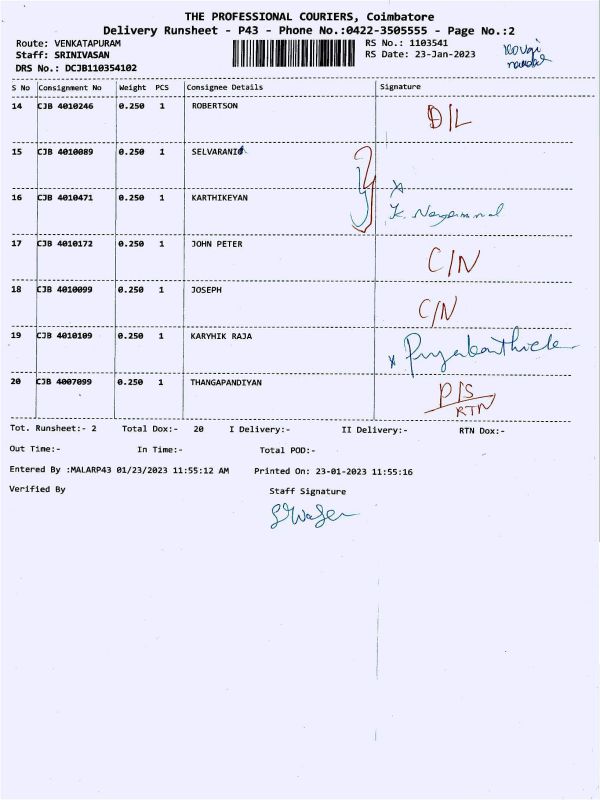 THE PROFESSIONAL COURIERS, Coimbatore
Delivery Runsheet - P43 - Phone No.:0422-3505555 - Page No.:2
Route: VENKATAPURAM RS No.: 1103541
Staff: SRINIVASAN RS Date: 23-Jan-2023
DRS No.: DCJB110354102
S No Consignment No Weight PCS Consignee Details Signature
14 CJB 4010246 0.250 1 ROBERTSON D/L
15 CJB 4010089 0.250 1 SELVARANI
16 CJB 4010471 0.250 1 KARTHIKEYAN
17 CJB 4010172 0.250 1 JOHN PETER C/N
18 CJB 4010099 0.250 1 JOSEPH C/N
19 CJB 4010109 0.250 1 KARYHIK RAJA
20 CJB 4007099 0.250 1 THANGAPANDIYAN P/S
RTN
Tot. Runsheet:- 2 Total Dox:- 20 I Delivery:- II Delivery:- RTN Dox:-
Out Time:- In Time:- Total POD:-
Entered By :MALARP43 01/23/2023 11:55:12 AM Printed On: 23-01-2023 11:55:16
Verified By Staff Signature